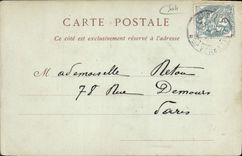 CARTE POSTALE
Ce côté est exclusivement réservé à l'adresse
Mademoiselle Retou
78 Rue Demours
Paris